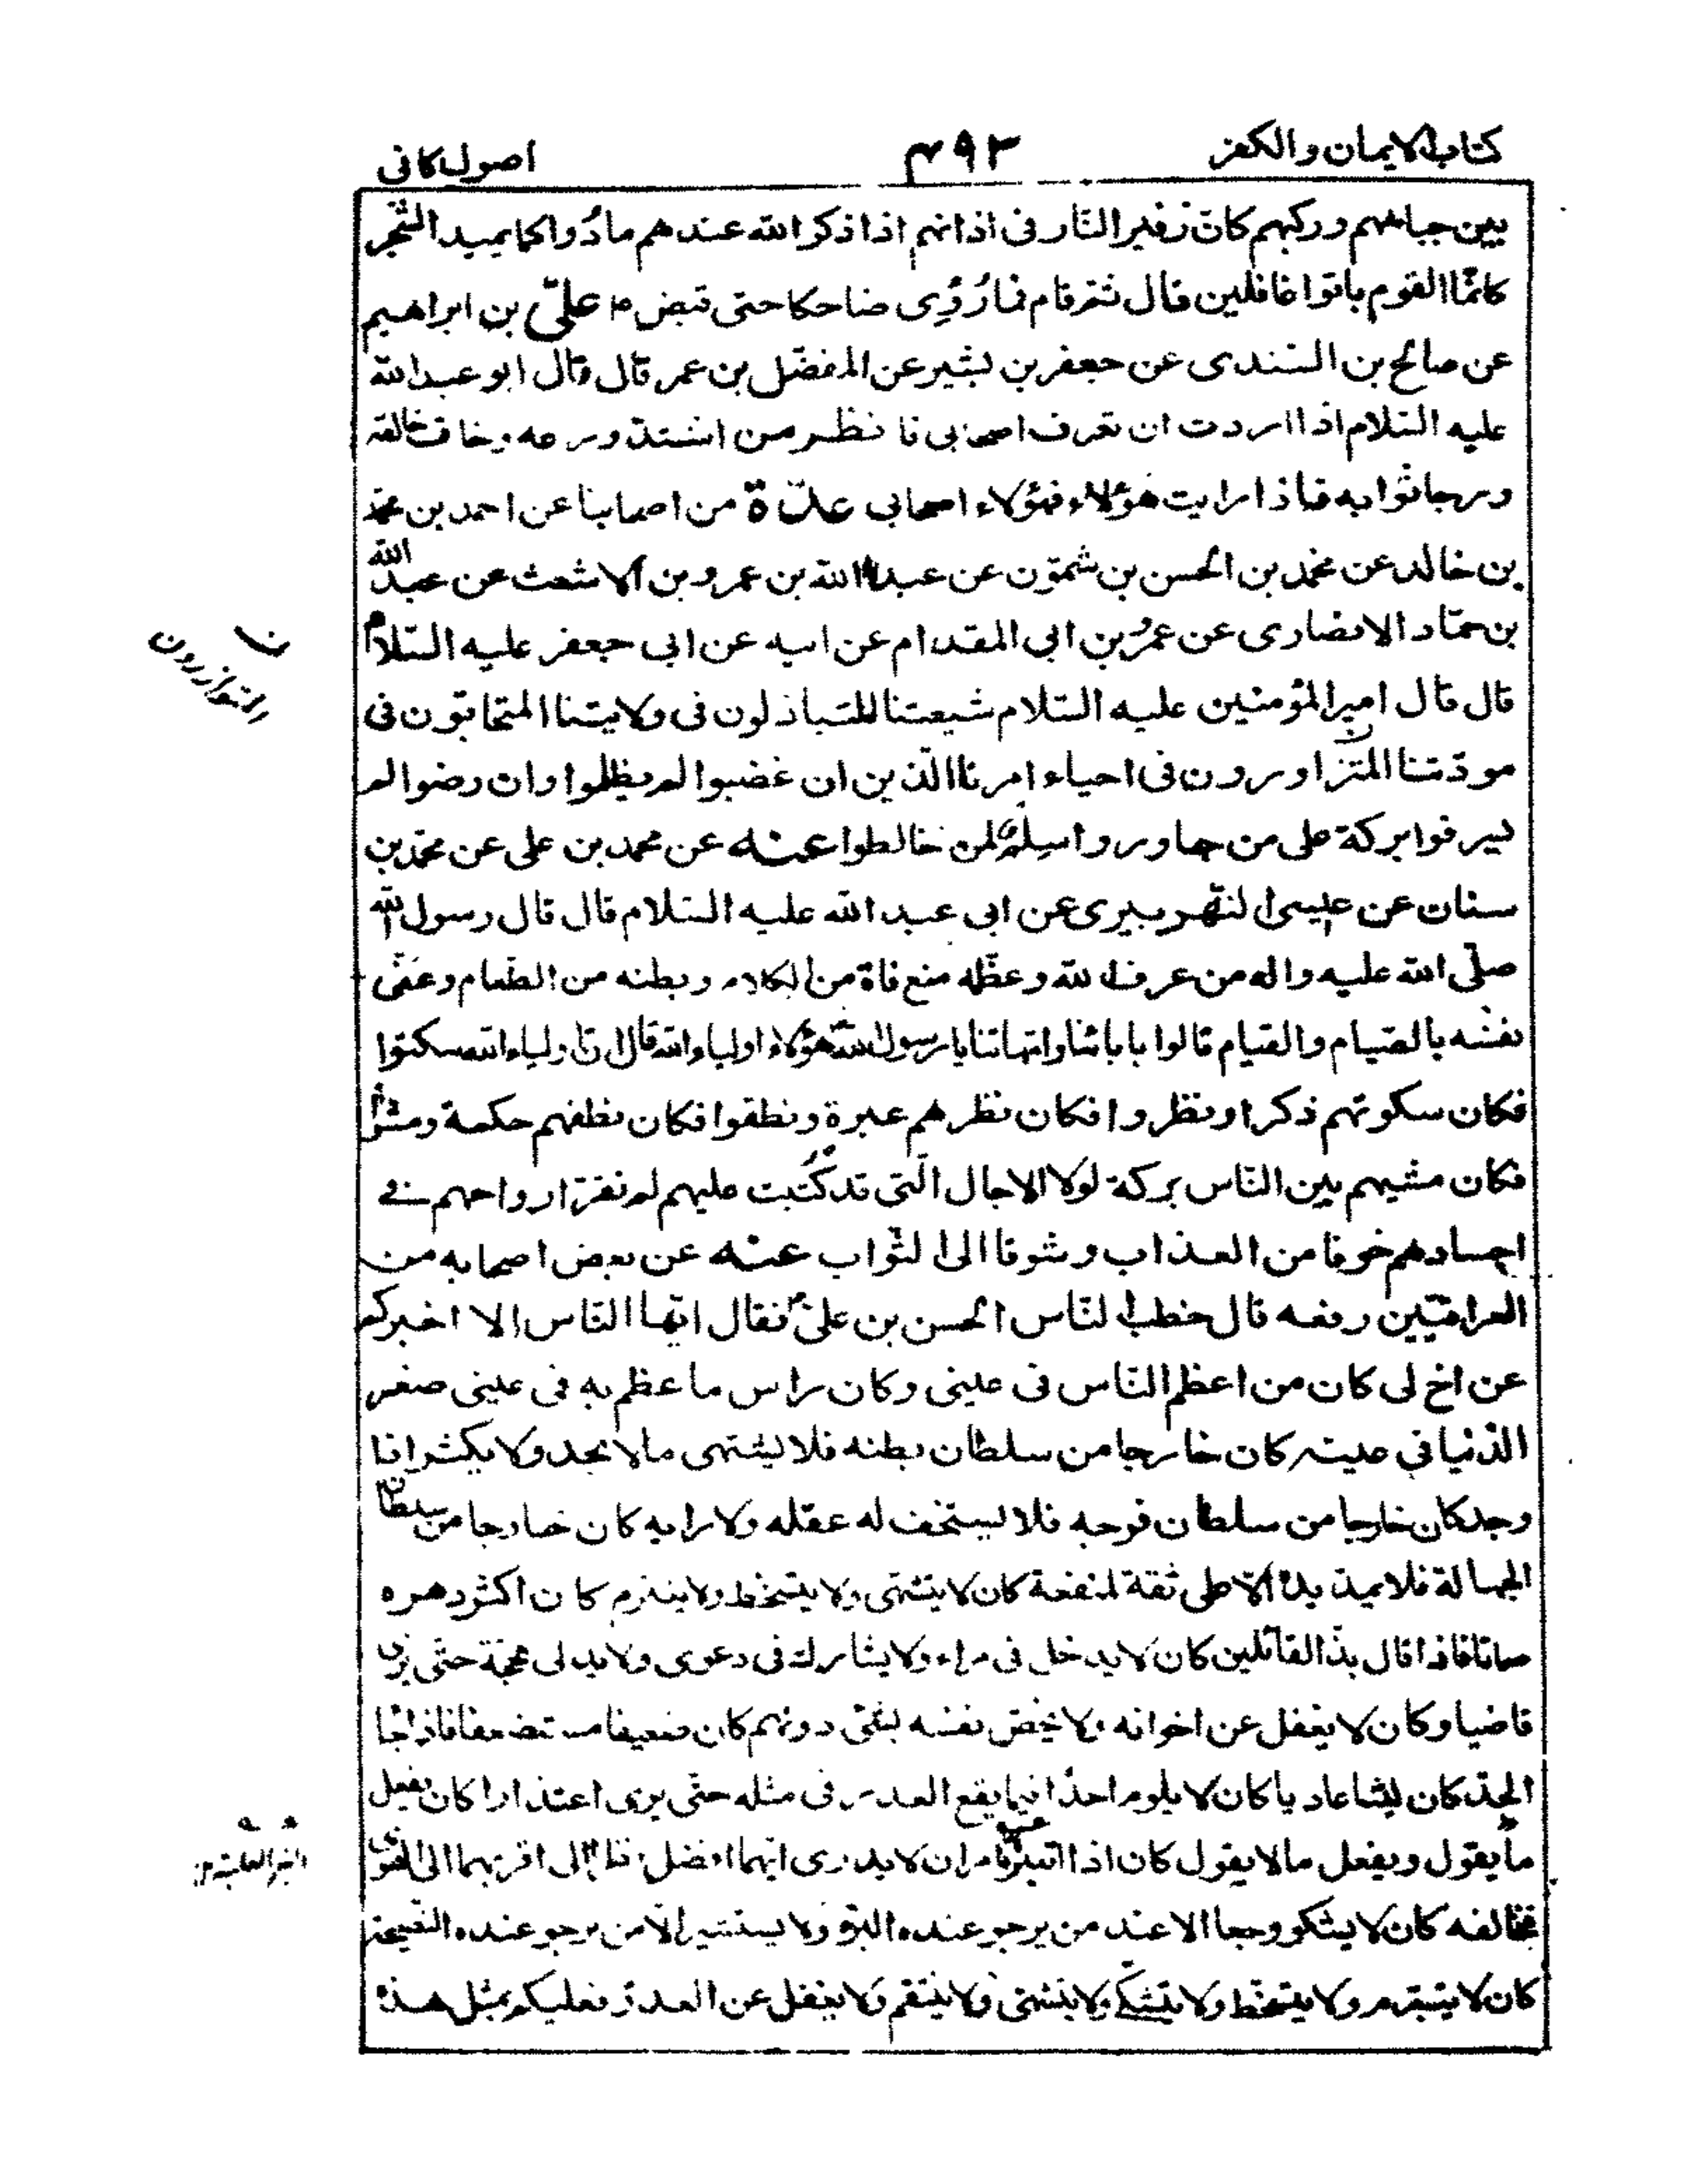 كتاب الايمان والكفر
۴۹۲
اصول كافى
بين جباههم وركبهم كان زفير النار فى اذانهم اذا ذكر الله عندهم مادوا كما يميد الشجر
كانما القوم باتوا غافلين قال ثم قام فما رُؤى ضاحكا حتى قبض ۴ علىّ بن ابراهيم
عن صالح بن السندى عن جعفر بن بشير عن المفضل بن عمر قال قال ابو عبد الله
عليه السلام اذا اردت ان تعرف اصحابى فانظر من اشتد ورعه وخاف خالقه
ورجا ثوابه فاذا رايت هؤلاء فهؤلاء اصحابى عدّة من اصحابنا عن احمد بن محمد
بن خالد عن محمد بن الحسن بن شمّون عن عبد الله بن عمرو بن الاشعث عن عبد الله
بن حمّاد الانصارى عن عمرو بن ابى المقدام عن ابيه عن ابى جعفر عليه السّلام
قال قال امير المؤمنين عليه السّلام شيعتنا المتباذلون فى ولايتنا المتحابّون فى
مودّتنا المتزاورون فى احياء امرنا الّذين ان غضبوا لم يظلموا وان رضوا لم
يسرفوا بركة على من جاوروا سلم لمن خالطوا عنه عن محمد بن على عن محمد بن
سنان عن عيسى النهربيرى عن ابى عبد الله عليه السّلام قال قال رسول الله
صلّى الله عليه واله من عرف الله وعظّمه منع فاه من الكلام وبطنه من الطّعام وعفى
نفسه بالصّيام والقيام قالوا بابائنا وامّهاتنا يا رسول الله هؤلاء اولياء الله قال ان اولياء الله سكتوا
فكان سكوتهم ذكرا ونظروا فكان نظرهم عبرة ونطقوا فكان نطقهم حكمة ومشوا
فكان مشيهم بين النّاس بركة لولا الاجال الّتى قد كتبت عليهم لم تقرّ ارواحهم فى
اجسادهم خوفا من العذاب وشوقا الى الثّواب عنه عن بعض اصحابه من
العراقيّين رفعه قال خطب النّاس الحسن بن علىّ ۴ فقال ايّها النّاس الا اخبركم
عن اخ لى كان من اعظم النّاس فى عينى وكان راس ما عظم به فى عينى صغر
الدّنيا فى عينه كان خارجا من سلطان بطنه فلا يشتهى ما لا يجد ولا يكثر اذا
وجد كان خارجا من سلطان فرجه فلا يستخف له عقله ولا رايه كان خارجا من سلطان
الجهالة فلا يمد يده الّا على ثقة لمنفعة كان لا يتشهى ولا يتسخط ولا يتبرم كان اكثر دهره
صماتا فاذا قال بذّ القائلين كان لا يدخل فى مراء ولا يشارك فى دعوى ولا يدلى بحجّة حتّى يرى
قاضيا وكان لا يغفل عن اخوانه ولا يخصّ نفسه بشئ دونهم كان ضعيفا مستضعفا فاذا جا
الجدّ كان ليثا عاديا كان لا يلوم احدا فيما يقع العذر فى مثله حتّى يرى اعتذارا كان يفعل
ما يقول ويفعل ما لا يقول كان اذا ابتزّه امران لا يدرى ايّهما افضل نظر الى اقربهما الى الهوى
فخالفه كان لا يشكو وجعا الا عند من يرجو عنده البرؤ ولا يستشير الّا من يرجو عنده النّصيحة
كان لا يتبرّم ولا يتسخّط ولا يتشكّى ولا يتشهّى ولا ينتقم ولا يغفل عن العدوّ فعليكم بمثل هذه
المتوازرون ن